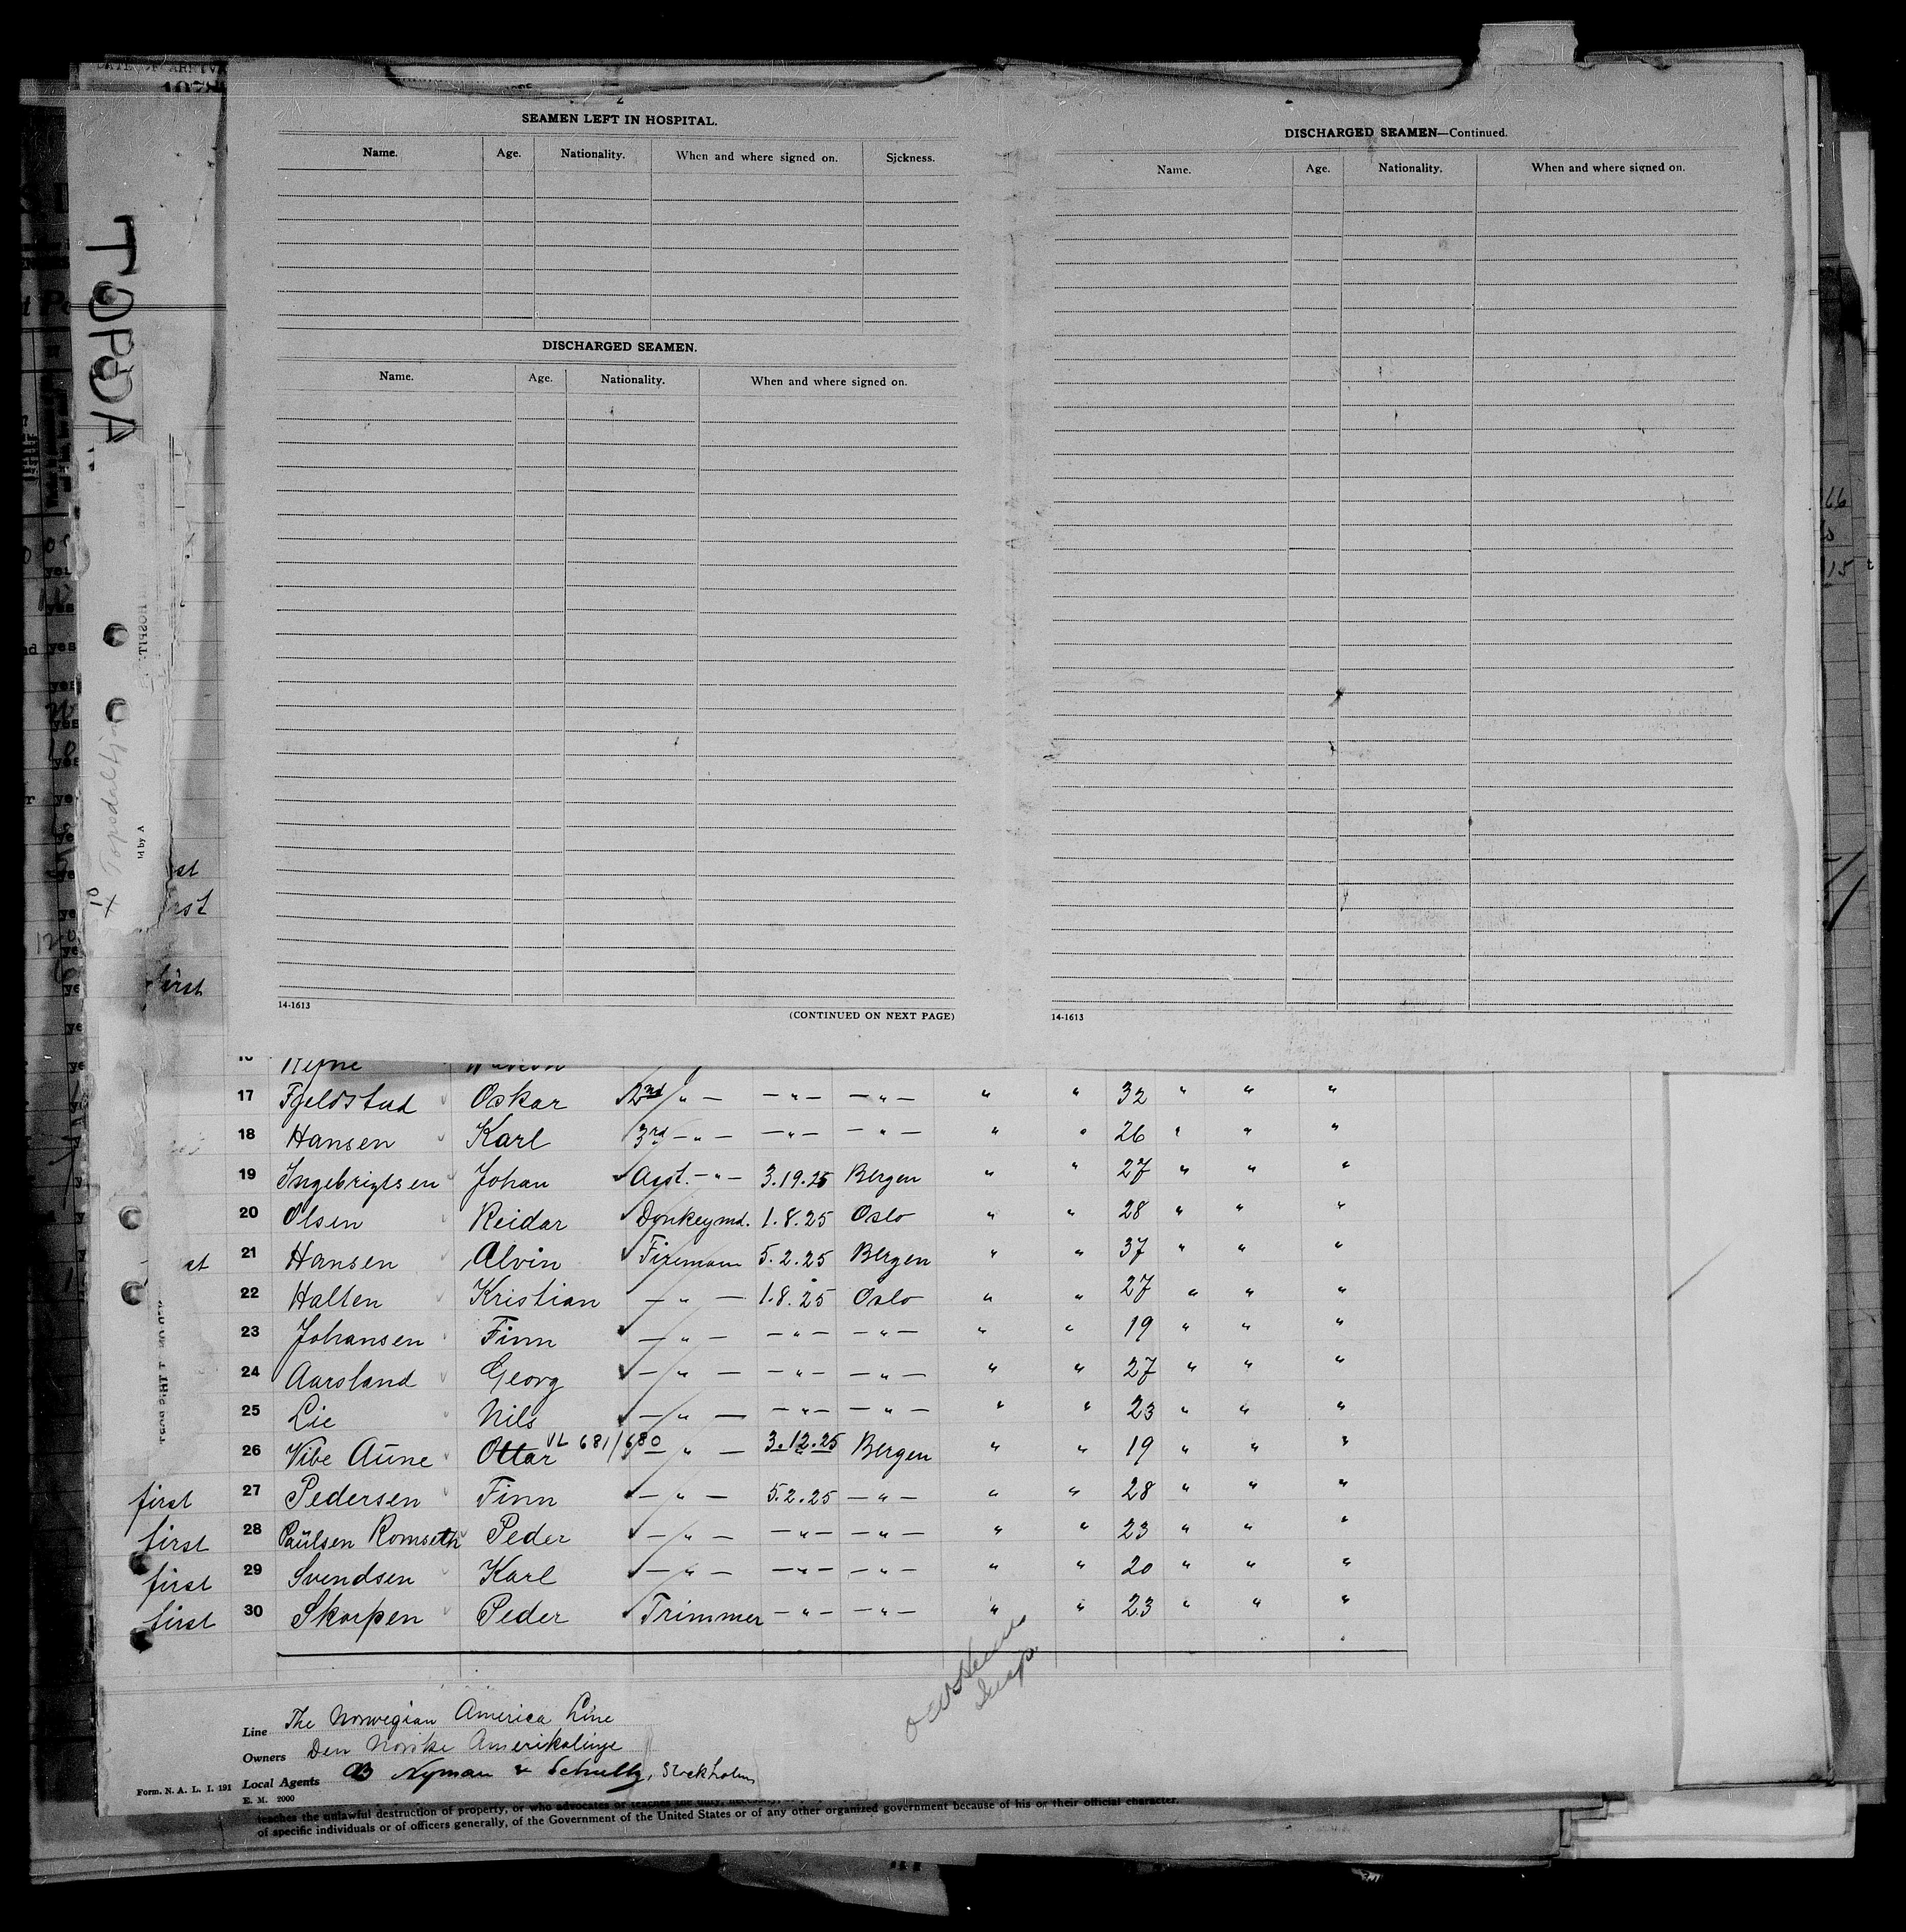 DATE OF ARRIVAL
TOPDA
SEAMEN LEFT IN HOSPITAL.
Name. Age. Nationality. When and where signed on. Sickness.
DISCHARGED SEAMEN.
Name. Age. Nationality. When and where signed on.
14-1613
(CONTINUED ON NEXT PAGE)
DISCHARGED SEAMEN—Continued.
Name. Age. Nationality. When and where signed on.
14-1613
Topdalsfjord
first
17 Fjeldstad Oskar 2nd — " — — " — — " — " " 32 " " "
18 Hansen Karl 3rd — " — — " — — " — " " 26 " " "
19 Ingebrigtsen Johan Asst. — " — 3.19.25 Bergen " " 27 " " "
20 Olsen Reidar Donkeymd. 1.8.25 Oslo " " 28 " " "
21 Hansen Alvin Fireman 5.2.25 Bergen " " 37 " " "
22 Halten Kristian — " — 1.8.25 Oslo " " 27 " " "
23 Johansen Finn — " — — " — — " — " " 19 " " "
24 Aarsland Georg — " — — " — — " — " " 27 " " "
25 Lie Nils — " — — " — — " — " " 23 " " "
26 Vibe Aune Ottar VL 681/680 — " — 3.12.25 Bergen " " 19 " " "
first 27 Pedersen Finn — " — 5.2.25 — " — " " 28 " " "
first 28 Paulsen Romseth Peder — " — — " — — " — " " 23 " " "
first 29 Svendsen Karl — " — — " — — " — " " 20 " " "
first 30 Skorpen Peder Trimmer — " — — " — " " 23 " " "
Insp.
Line The Norwegian America Line
Owners Den Norske Amerikalinje
Form. N. A. L. I. 191 Local Agents Nyman & Schultz, Stockholm
E. M. 2000
teaches the unlawful destruction of property, or who advocates or teaches the duty,
of specific individuals or of officers generally, of the Government of the United States or of any other organized government because of his or their official character.